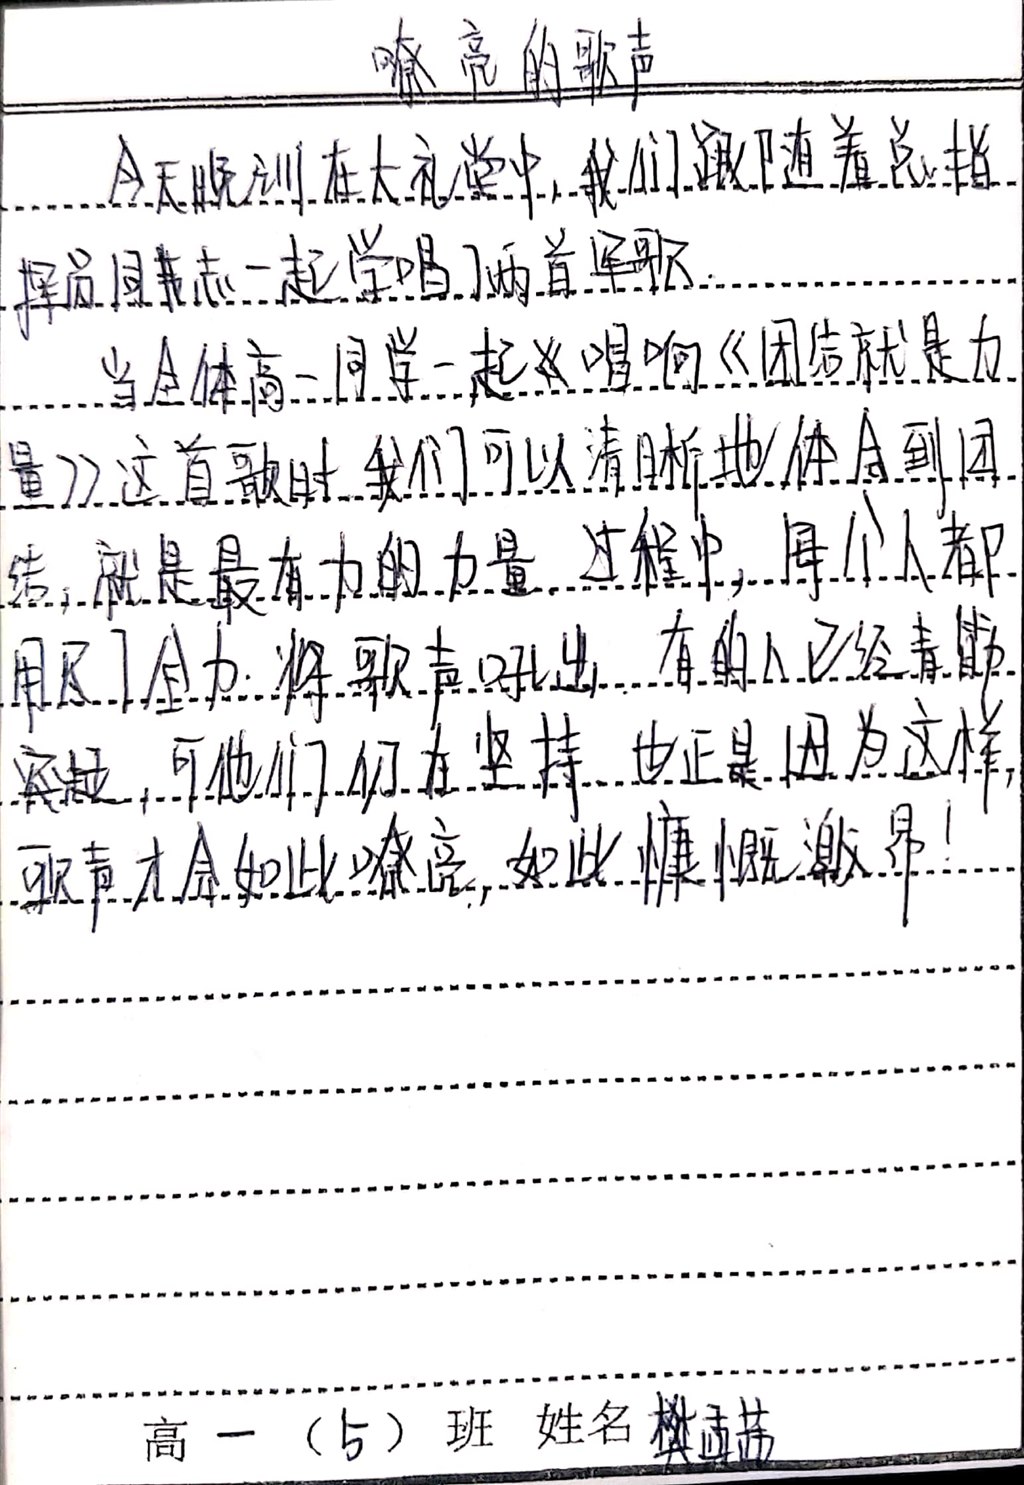 嘹亮的歌声
今天晚训在大礼堂中,我们跟随着总指
挥员同志一起学唱了两首军歌.
当全体高一同学一起唱响《团结就是力
量》这首歌时,我们可以清晰地体会到团
结,就是最有力的力量.过程中,每个人都
用尽了全力.将歌声吼出.有的人已经青筋
突起,可他们仍在坚持.也正是因为这样,
歌声才会如此嘹亮,如此慷慨激昂!
高一(5)班 姓名 樊